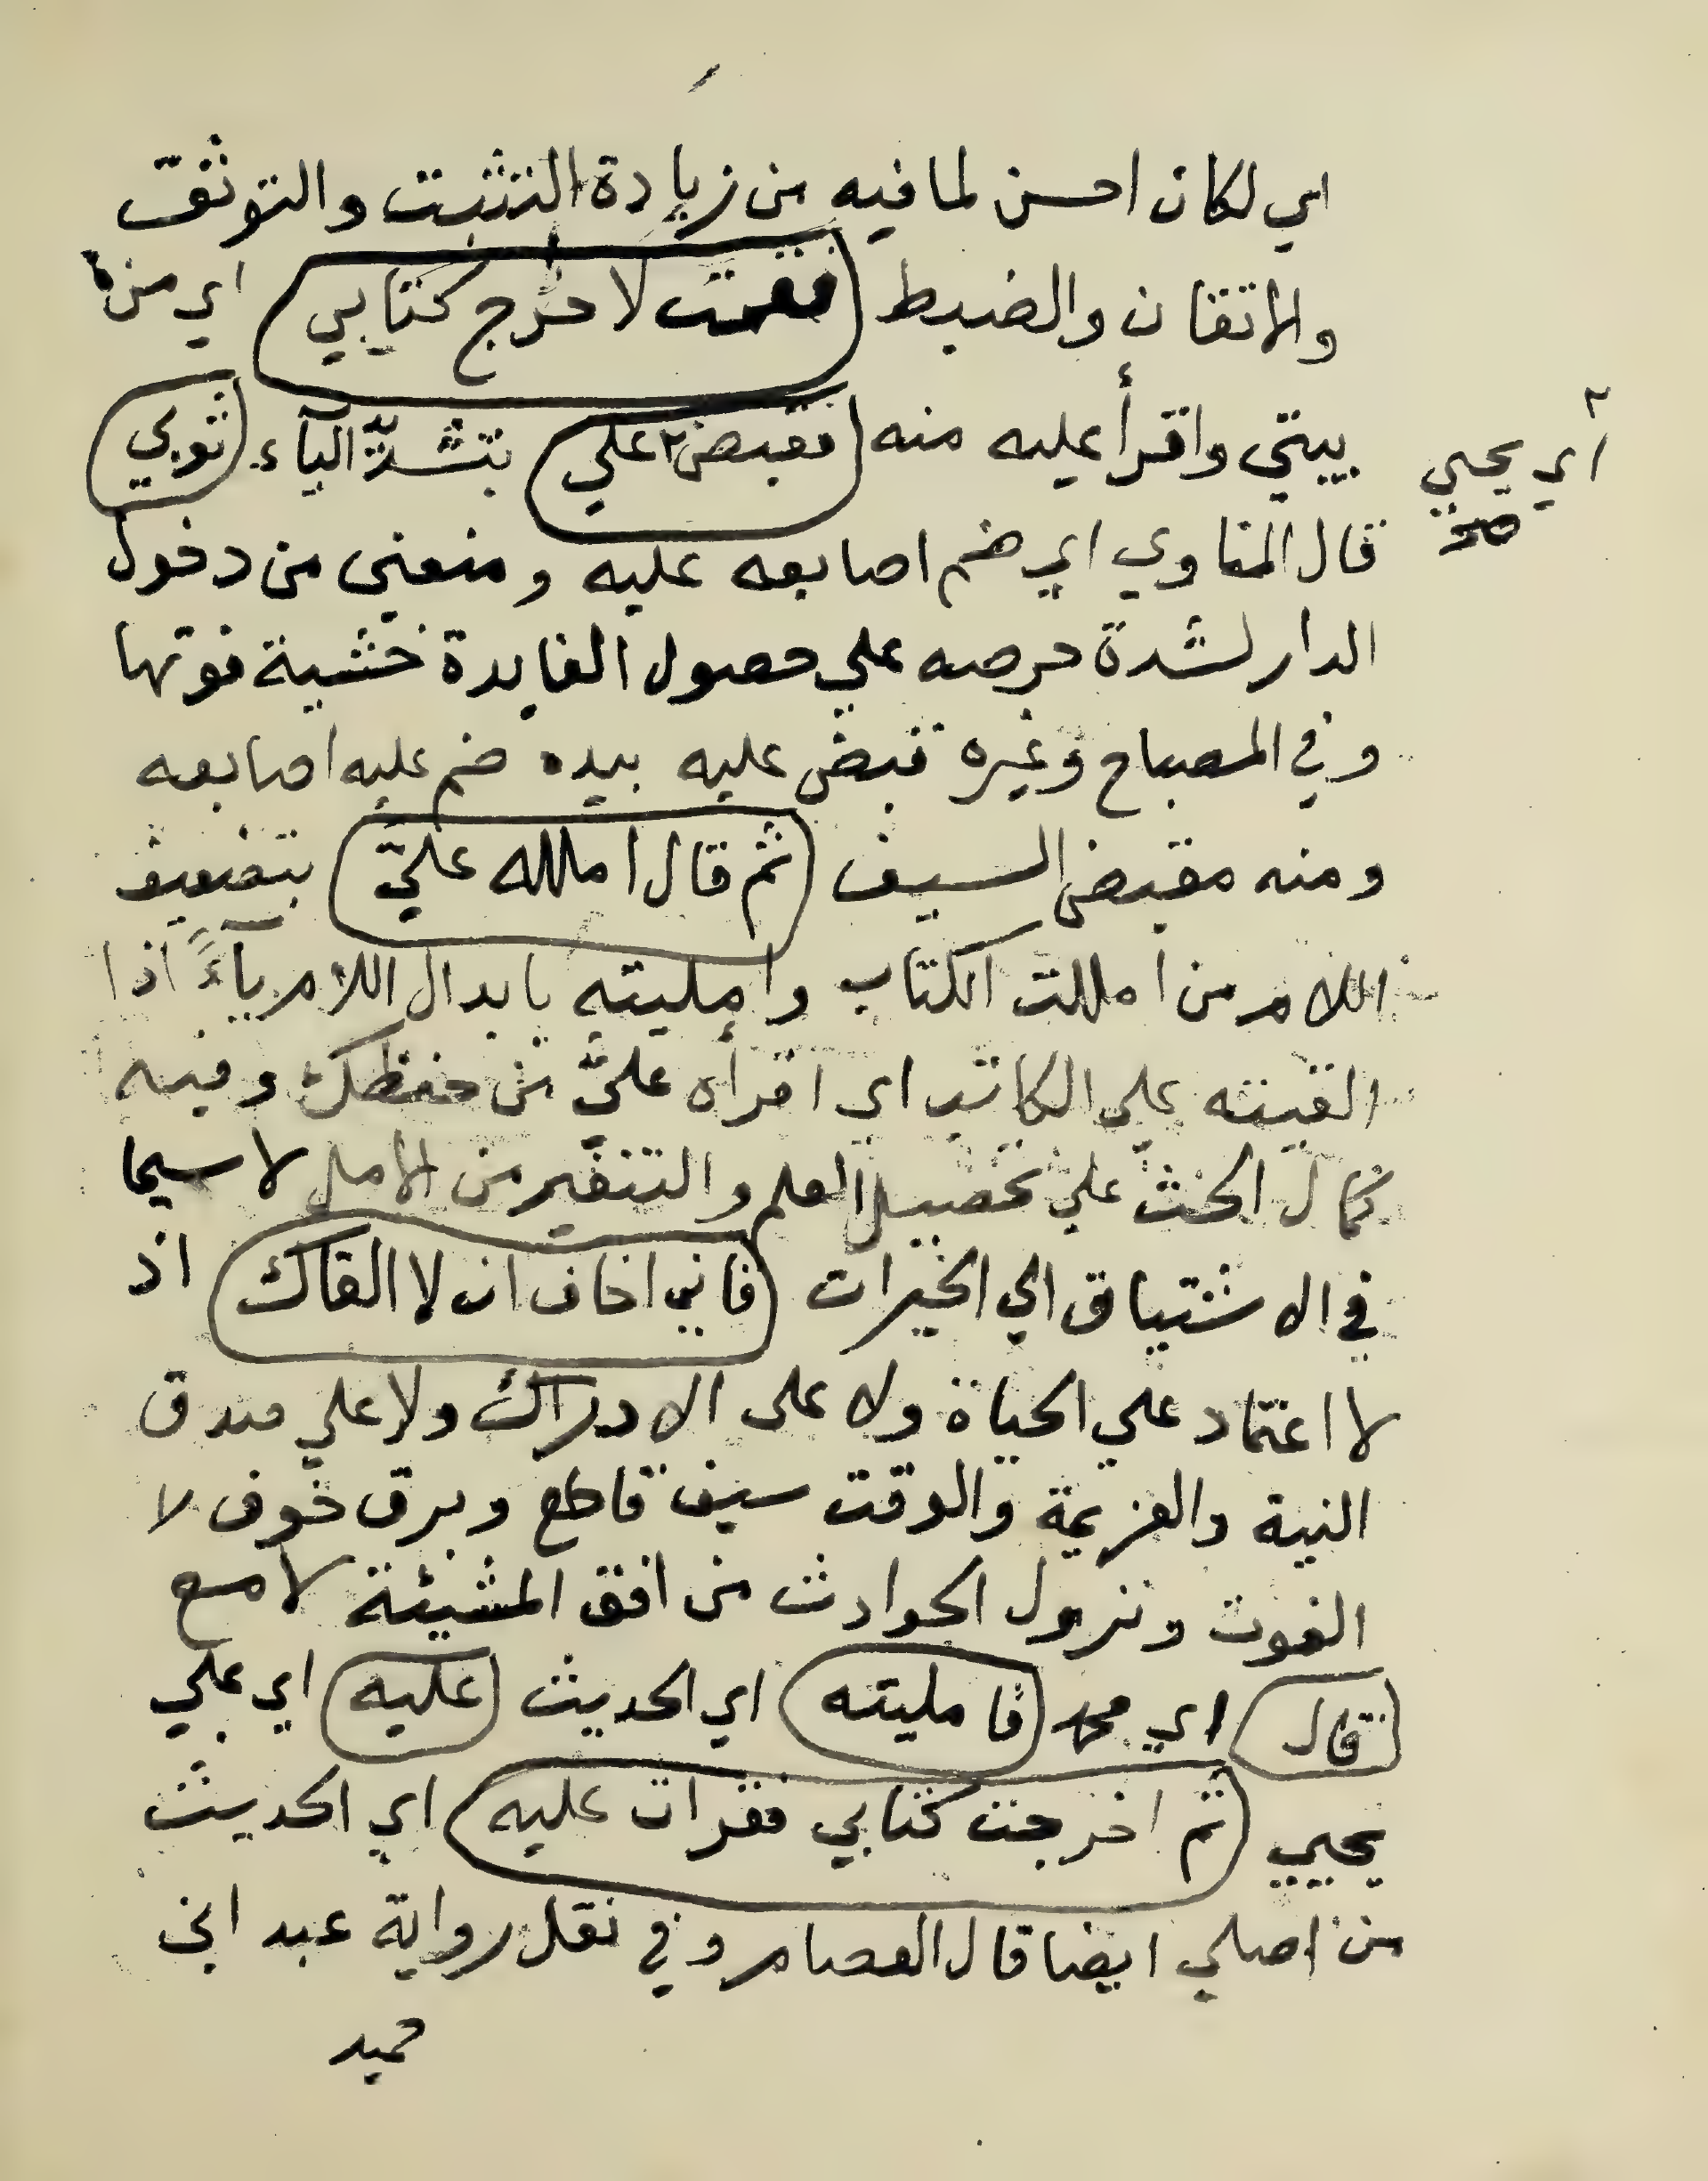 اي لكان احسن لما فيه من زيادة التثبت والتوثق
والاتقان والضبط فقمت لاخرج كتابي اي من
بيتي واقرأ عليه منه فقبض٢ علي بتشدّ اليآء ثوبي
٢
أي يحيي
قال المناوي اي ضم اصابعه عليه ومنعني من دخول
الدار لشدة حرصه علي حصول الفايدة خشية فوتها
وفي المصباح وغيره قبض عليه بيده ضم عليه اصابعه
ومنه مقبض السيف ثم قال امللہ عليّ بتضعيف
اللام من امللت الكتاب وامليته بابدال اللام ياءً اذا
القيته علي الكاتب اي اقرأه عليّ من حفظك وفيه
كمال الحث علي تحصيل العلم والتنفير من الامل لا سيما
في الاشتياق الي الخيرات فاني اخاف ان لا القاك اذ
لا اعتماد علي الحياة ولا على الادراك ولا علي صدق
النية والعزيمة والوقت سيف قاطع وبرق خوف لا
الفوت ونزول الحوادث من افق المشيئة لامع
قال اي محمد فامليته اي الحديث عليه اي علي
يحيي ثم اخرجت كتابي فقرات عليه اي الحديث
من اصلي ايضا قال العصام وفي نقل رواية عبد ابن
حميد